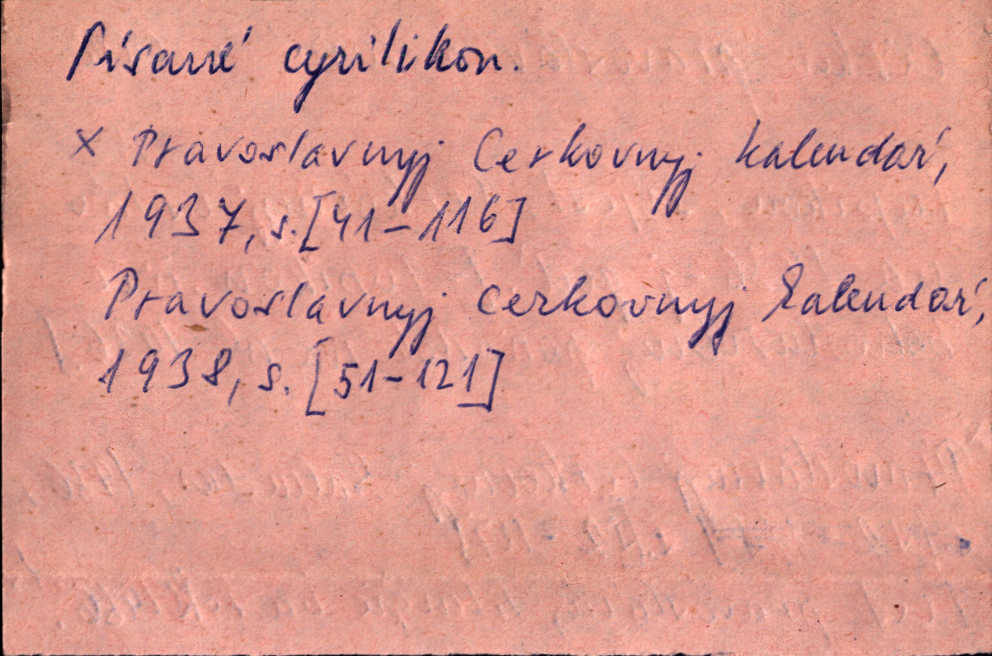 Písané cyrilikon.
× Pravoslavnyj Cerkovnyj kalendaŕ,
1937, s. [41-116]
Pravoslavnyj cerkovnyj kalendaŕ,
1938, s. [51-121]